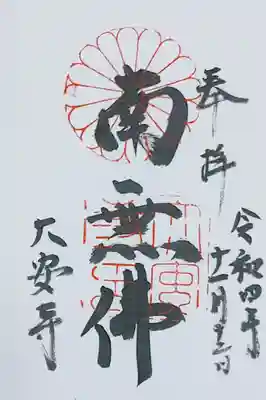 奉拝
令和四年
十一月十三日
南無佛
大安寺